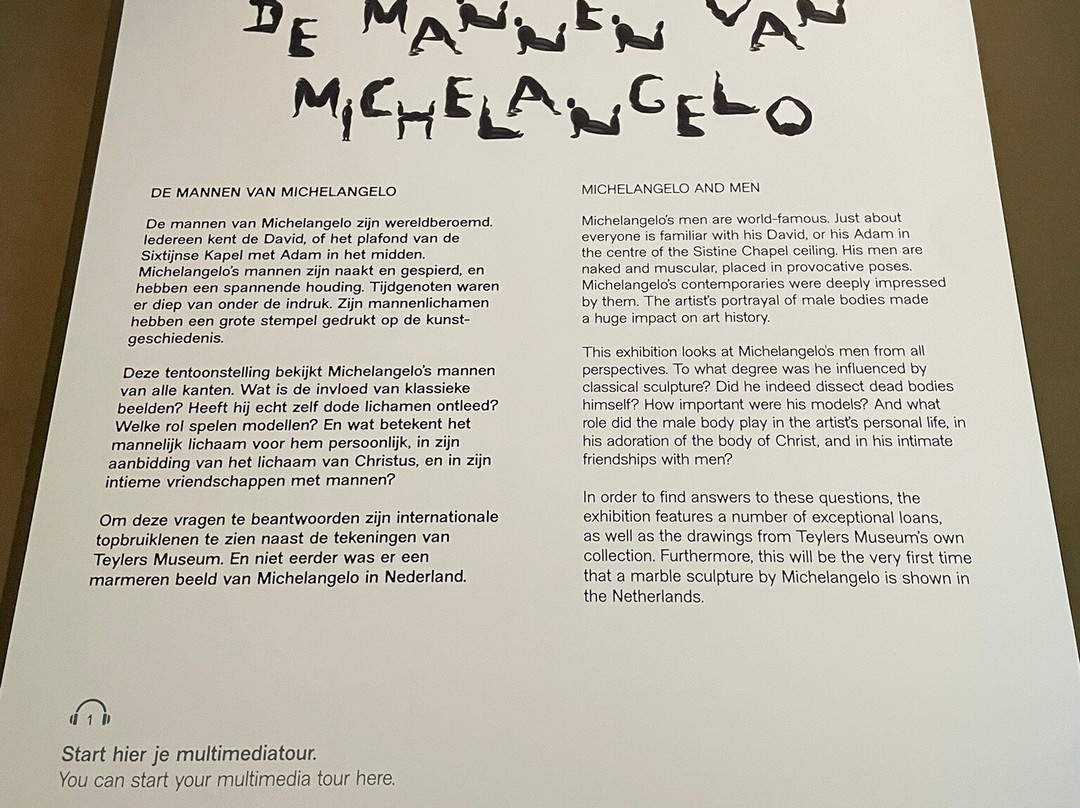 DE MANNEN VAN
MICHELANGELO
DE MANNEN VAN MICHELANGELO
De mannen van Michelangelo zijn wereldberoemd.
Iedereen kent de David, of het plafond van de
Sixtijnse Kapel met Adam in het midden.
Michelangelo's mannen zijn naakt en gespierd, en
hebben een spannende houding. Tijdgenoten waren
er diep van onder de indruk. Zijn mannenlichamen
hebben een grote stempel gedrukt op de kunst-
geschiedenis.
Deze tentoonstelling bekijkt Michelangelo's mannen
van alle kanten. Wat is de invloed van klassieke
beelden? Heeft hij echt zelf dode lichamen ontleed?
Welke rol spelen modellen? En wat betekent het
mannelijk lichaam voor hem persoonlijk, in zijn
aanbidding van het lichaam van Christus, en in zijn
intieme vriendschappen met mannen?
Om deze vragen te beantwoorden zijn internationale
topbruiklenen te zien naast de tekeningen van
Teylers Museum. En niet eerder was er een
marmeren beeld van Michelangelo in Nederland.
MICHELANGELO AND MEN
Michelangelo's men are world-famous. Just about
everyone is familiar with his David, or his Adam in
the centre of the Sistine Chapel ceiling. His men are
naked and muscular, placed in provocative poses.
Michelangelo's contemporaries were deeply impressed
by them. The artist's portrayal of male bodies made
a huge impact on art history.
This exhibition looks at Michelangelo's men from all
perspectives. To what degree was he influenced by
classical sculpture? Did he indeed dissect dead bodies
himself? How important were his models? And what
role did the male body play in the artist's personal life, in
his adoration of the body of Christ, and in his intimate
friendships with men?
In order to find answers to these questions, the
exhibition features a number of exceptional loans,
as well as the drawings from Teylers Museum's own
collection. Furthermore, this will be the very first time
that a marble sculpture by Michelangelo is shown in
the Netherlands.
1
Start hier je multimediatour.
You can start your multimedia tour here.